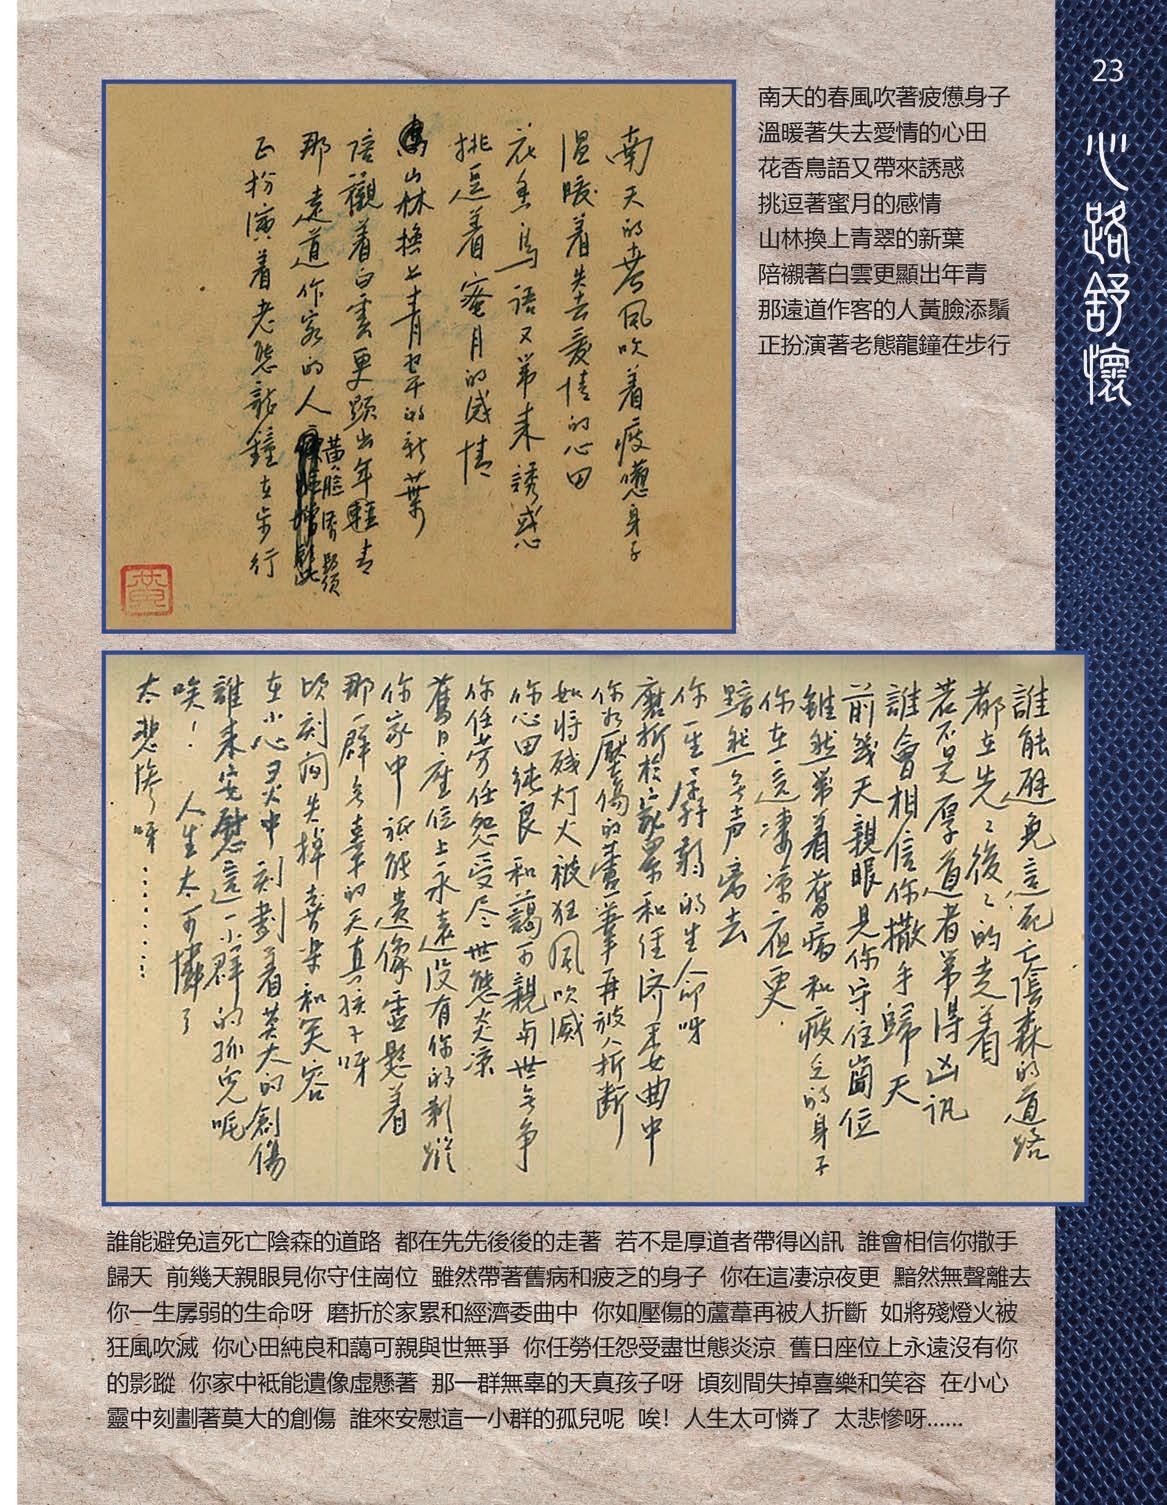 23
心路舒懷
南天的春風吹著疲憊身子
溫暖著失去愛情的心田
花香鳥語又帶來誘惑
挑逗著蜜月的感情
山林換上青翠的新葉
陪襯著白雲更顯出年青
那遠道作客的人黃臉添鬚
正扮演著老態龍鐘在步行
南天的春風吹着疲憊身子
溫暖着失去愛情的心田
花香鳥語又帶來誘惑
挑逗着蜜月的感情
山林換上青翠的新葉
陪襯着白雲更顯出年輕青
那遠道作客的人黃臉添鬚
正扮演着老態龍鐘在步行
黄
誰能避免這死亡陰森的道路
都在先々後々的走着
若不是厚道者帶得凶訊
誰會相信你撒手歸天
前幾天親眼見你守住崗位
雖然帶着舊病和疲乏的身子
你在這凄凉夜更.
黯然無声离去
你一生孱弱的生命呀
磨折於家累和經济委曲中
你如壓傷的蘆葦再被人折斷
如將殘灯火被狂風吹滅
你心田純良和藹可親与世無争
你任劳任怨受尽世態炎凉
舊日座位上永遠沒有你的影蹤
你家中祗能遺像虛懸着
那一群無辜的天真孩子呀
頃刻间失掉喜樂和笑容
在小心灵中刻劃着莫大的創傷
誰來安慰這一小群的孤兒呢
唉！人生太可憐了
太悲慘呀………
誰能避免這死亡陰森的道路 都在先先後後的走著 若不是厚道者帶得凶訊 誰會相信你撒手
歸天 前幾天親眼見你守住崗位 雖然帶著舊病和疲乏的身子 你在這凄涼夜更 黯然無聲離去
你一生孱弱的生命呀 磨折於家累和經濟委曲中 你如壓傷的蘆葦再被人折斷 如將殘燈火被
狂風吹滅 你心田純良和藹可親與世無爭 你任勞任怨受盡世態炎涼 舊日座位上永遠沒有你
的影蹤 你家中祗能遺像虛懸著 那一群無辜的天真孩子呀 頃刻間失掉喜樂和笑容 在小心
靈中刻劃著莫大的創傷 誰來安慰這一小群的孤兒呢 唉！人生太可憐了 太悲慘呀……